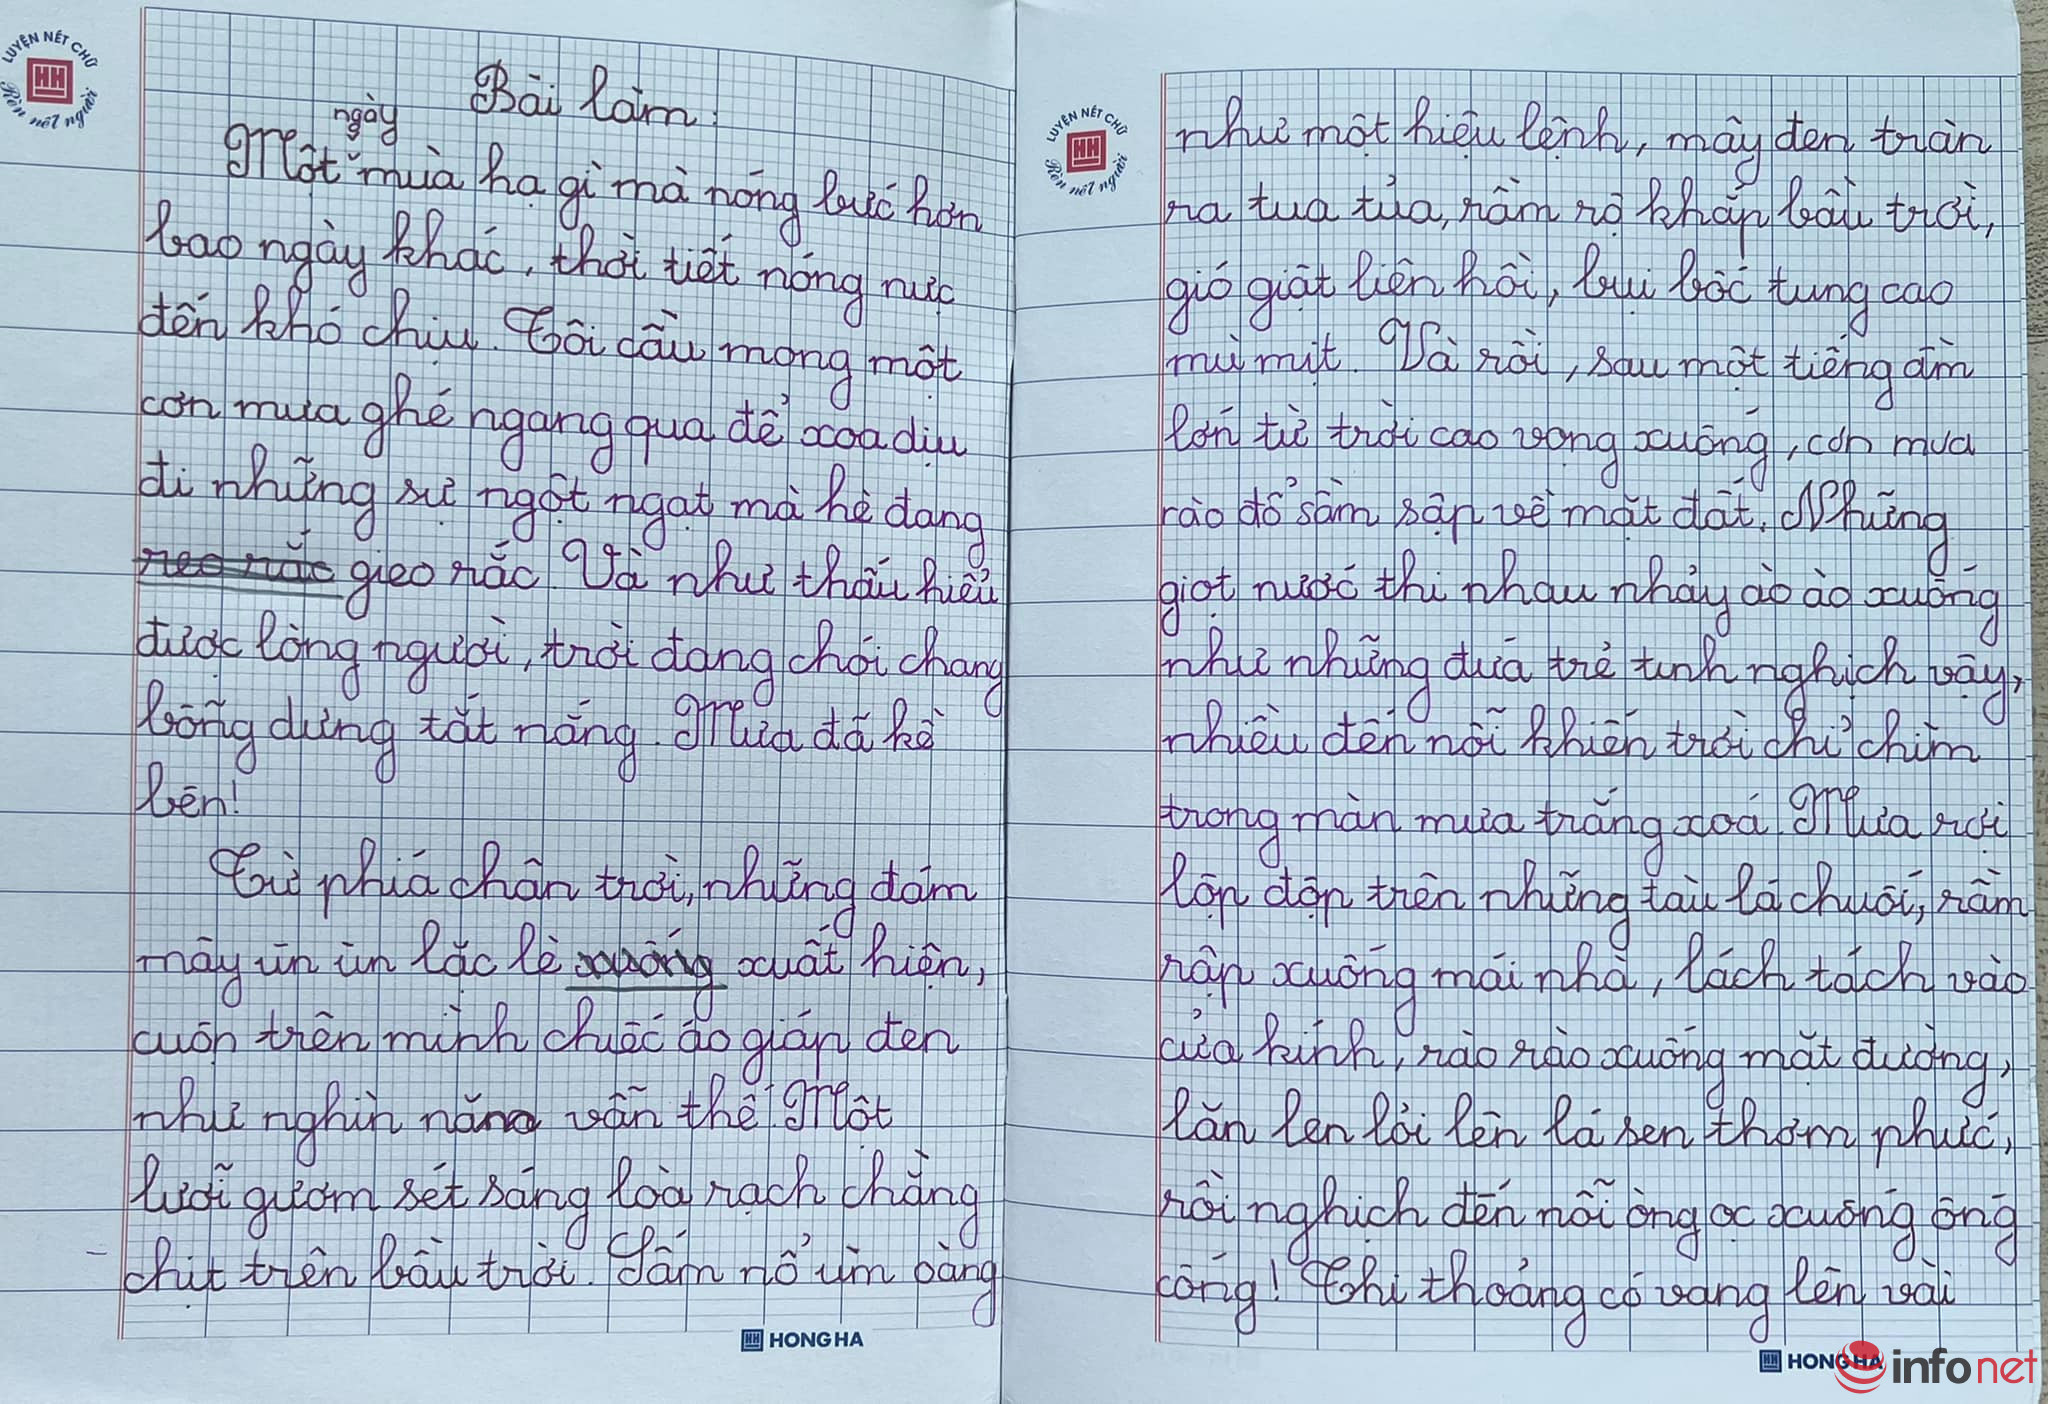 LUYỆN NÉT CHỮ
HH
Rèn nết người
Bài làm:
ngày
Một ˇ mùa hạ gì mà nóng bức hơn
bao ngày khác, thời tiết nóng nực
đến khó chịu. Tôi cầu mong một
cơn mưa ghé ngang qua để xoa dịu
đi những sự ngột ngạt mà hè đang
reo rắc gieo rắc. Và như thấu hiểu
được lòng người, trời đang chói chang
bỗng dưng tắt nắng. Mưa đã kề
bên!
Từ phía chân trời, những đám
mây ùn ùn lặc lè xuống xuất hiện,
cuộn trên mình chiếc áo giáp đen
như nghìn năm vẫn thế. Một
lưỡi gươm sét sáng loà rạch chằng
chịt trên bầu trời. Sấm nổ ùm oàng
HH HONG HA
LUYỆN NÉT CHỮ
HH
Rèn nết người
như một hiệu lệnh, mây đen tràn
ra tua tủa, rầm rộ khắp bầu trời,
gió giật liên hồi, bụi bốc tung cao
mù mịt. Và rồi, sau một tiếng ầm
lớn từ trời cao vọng xuống, cơn mưa
rào đổ sầm sập về mặt đất. Những
giọt nước thi nhau nhảy ào ào xuống
như những đứa trẻ tinh nghịch vậy,
nhiều đến nỗi khiến trời chỉ chìm
trong màn mưa trắng xoá. Mưa rơi
lộp độp trên những tàu lá chuối, rầm
rập xuống mái nhà, lách tách vào
cửa kính, rào rào xuống mặt đường,
lăn len lỏi lên lá sen thơm phức,
rồi nghịch đến nỗi òng ọc xuống ống
cống! Thi thoảng có vang lên vài
HH HONG HA
infonet